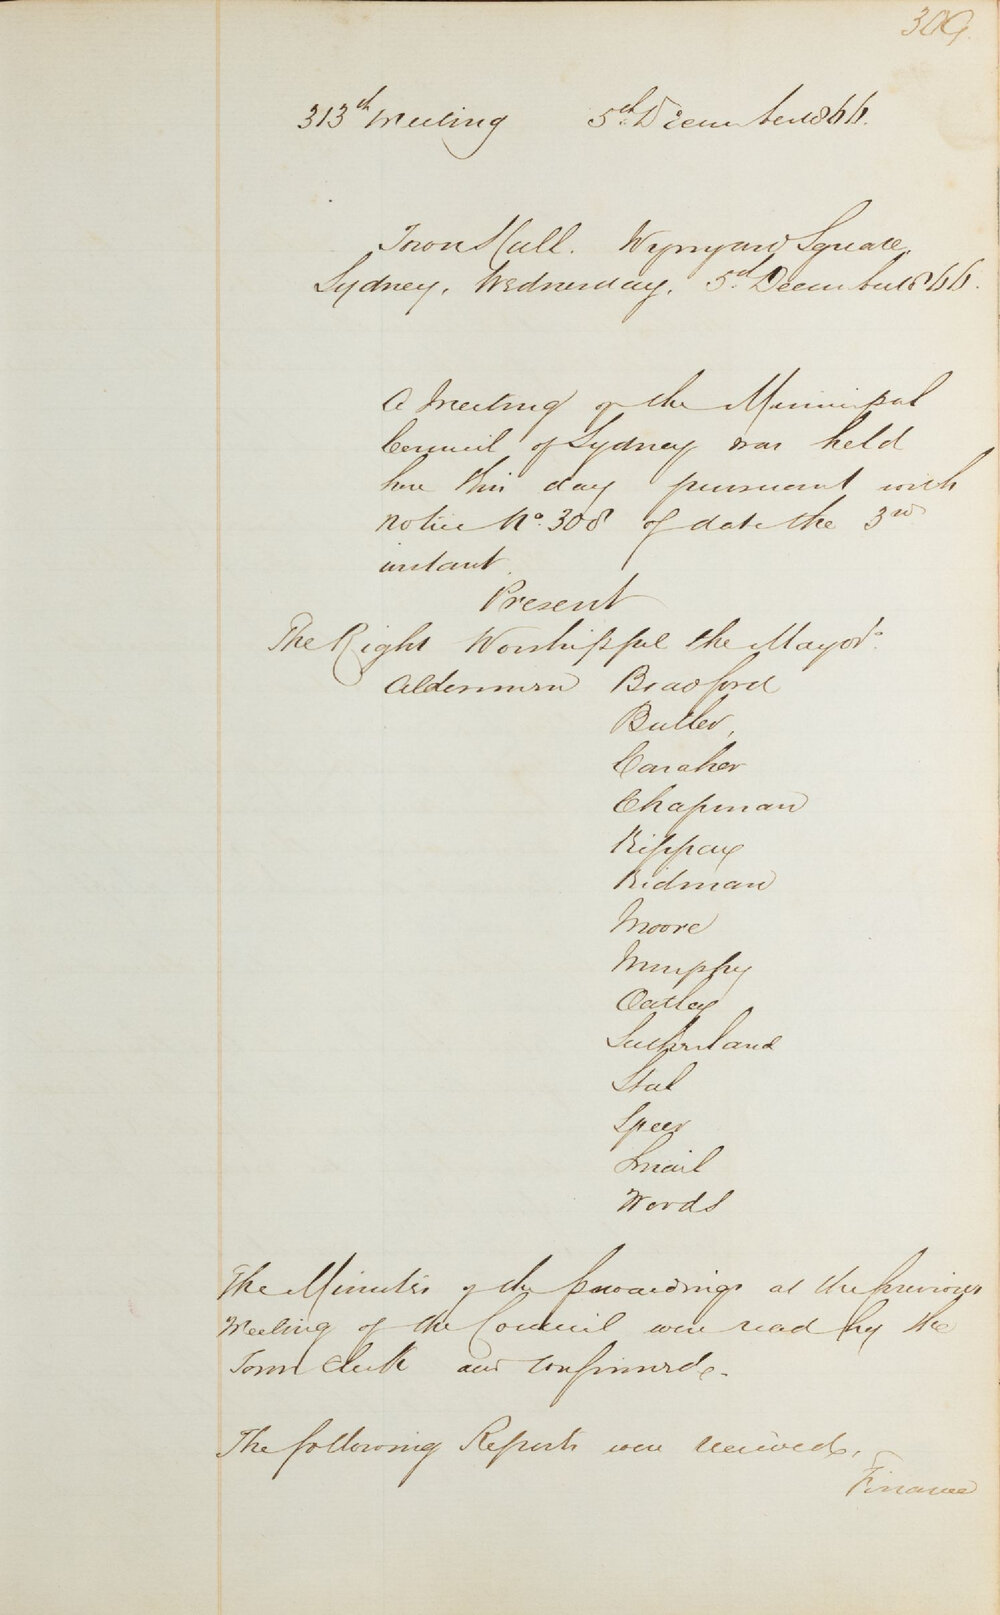 309.
313th Meeting 5th December 1866.
Town Hall. Wynyard Square,
Sydney, Wednesday, 5th December 1866.
A Meeting of the Municipal
Council of Sydney was held
here this day pursuant with
notice No. 308 of date the 3rd
instant.
Present
The Right Worshipful the Mayor.
Aldermen Bradford
Butler,
Caraher
Chapman
Kippax
Kidman
Moore
Murphy
Oatley
Sutherland
Steel
Speer
Smail
Woods
The Minutes of the proceedings at the previous
Meeting of the Council were read by the
Town Clerk and confirmed.-
The following Reports were received.
Finance